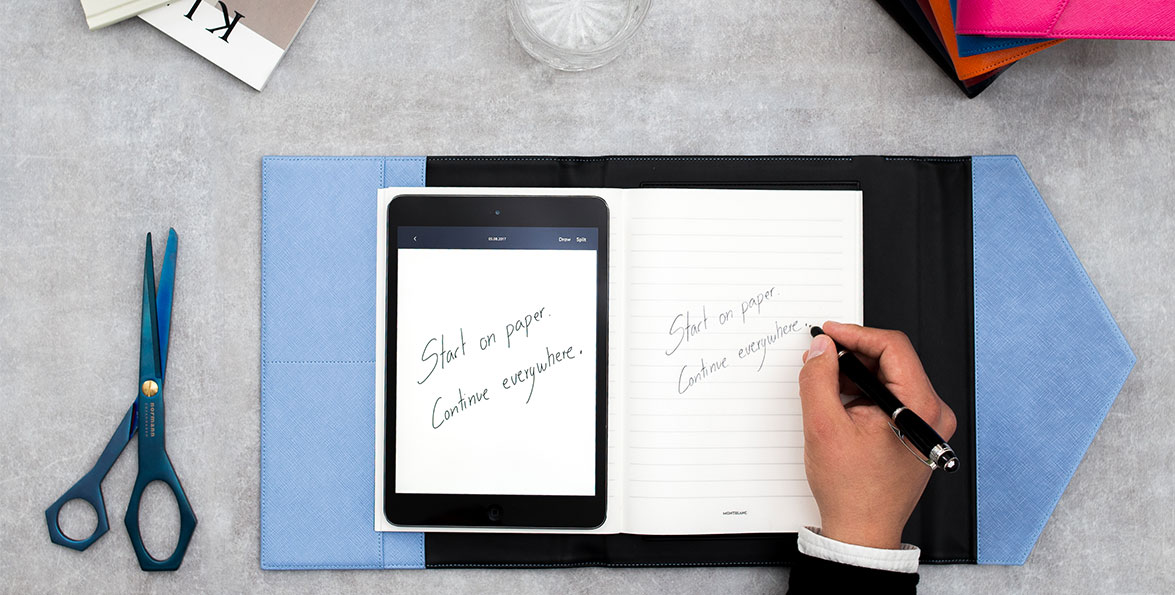 KI
05.08.2017
Draw Split
Start on paper.
Continue everywhere.
Start on paper.
Continue everywhere.
MONTBLANC
normann